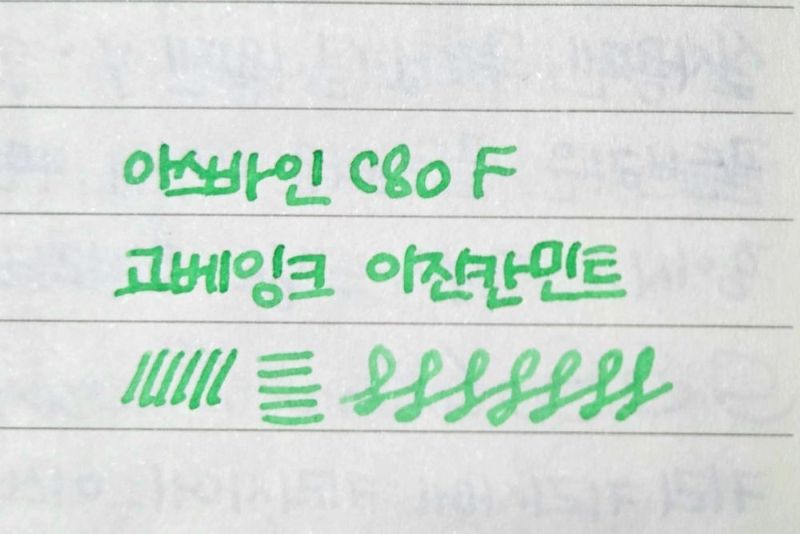 아스바인 C80 F
고베잉크 아잔칸민트